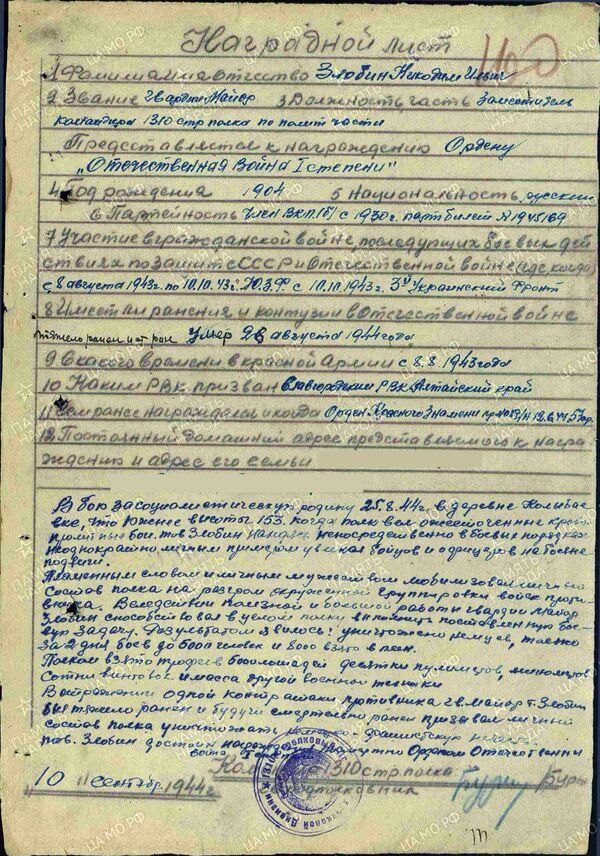 Наградной лист
1 Фамилия имя отчество Злобин Никодим Ильич
2 Звание Гвардии Майор 3 Должность часть Заместитель
командира 1310 стр полка по полит части
Представляется к награждению Ордену
„Отечественная Война I степени"
4 Год рождения 1904 5 Национальность русский
6 Партейность член ВКП(б) с 1930г. партбилет
7 Участие в гражданской войне, последующих боевых дей
ствиях по защите СССР и Отечественной войне (где, когда)
с 8 августа 1943г. по 10.10.43г. Ю.З.Ф. с 10.10 1943г. 3й Украинский Фронт
8 Имеет ли ранения и контузии в Отечественной войне
тяжело ранен и от ран умер 26 августа 1944 года
9 С какого времени в красной Армии с 8.8 1943 года
10 Каким РВК призван Славгородским РВК Алтайский край
11 Чем ранее награждался и когда Орден Красного Знамени
12 Постоянный домашний адрес представляемого к награ
ждению и адрес его семьи
В бою за социалистическую родину 25.8.44г. в деревне
что южнее высоты 153. когда полк вел ожесточенные крово
пролитные бои. тов Злобин находясь непосредственно в боевых порядках
неоднократно личным примером увлекал бойцов и офицеров на боевые
подвиги.
Пламенным словом и личным мужеством мобилизовал личный
состав полка на разгром окруженной группировки войск проти
вника. Вследствии полезной и большой работы гвардии майор
Злобин способствовал в целом полку выполнить поставленную бое-
вую задачу. Результатом явилось: уничтожено немцев, только
за 2 дня боев до 600 человек и 8000 взято в плен.
Полком взято трофеев 600 лошадей десятки пулеметов, минометов
сотни винтовок и масса другой военной техники
В отражении одной контратаки противника гв. майор т. Злобин
был тяжело ранен и будучи смертельно ранен призывал личный
состав полка уничтожать немецко фашистскую
тов. Злобин достоин награждения Орденом Отечественны
война
Ком 1310 стр. полка
подполковник Буры
10 сентябр. 1944г.
ЦАМО.РФ
ПАМЯТЬ НАРОДА